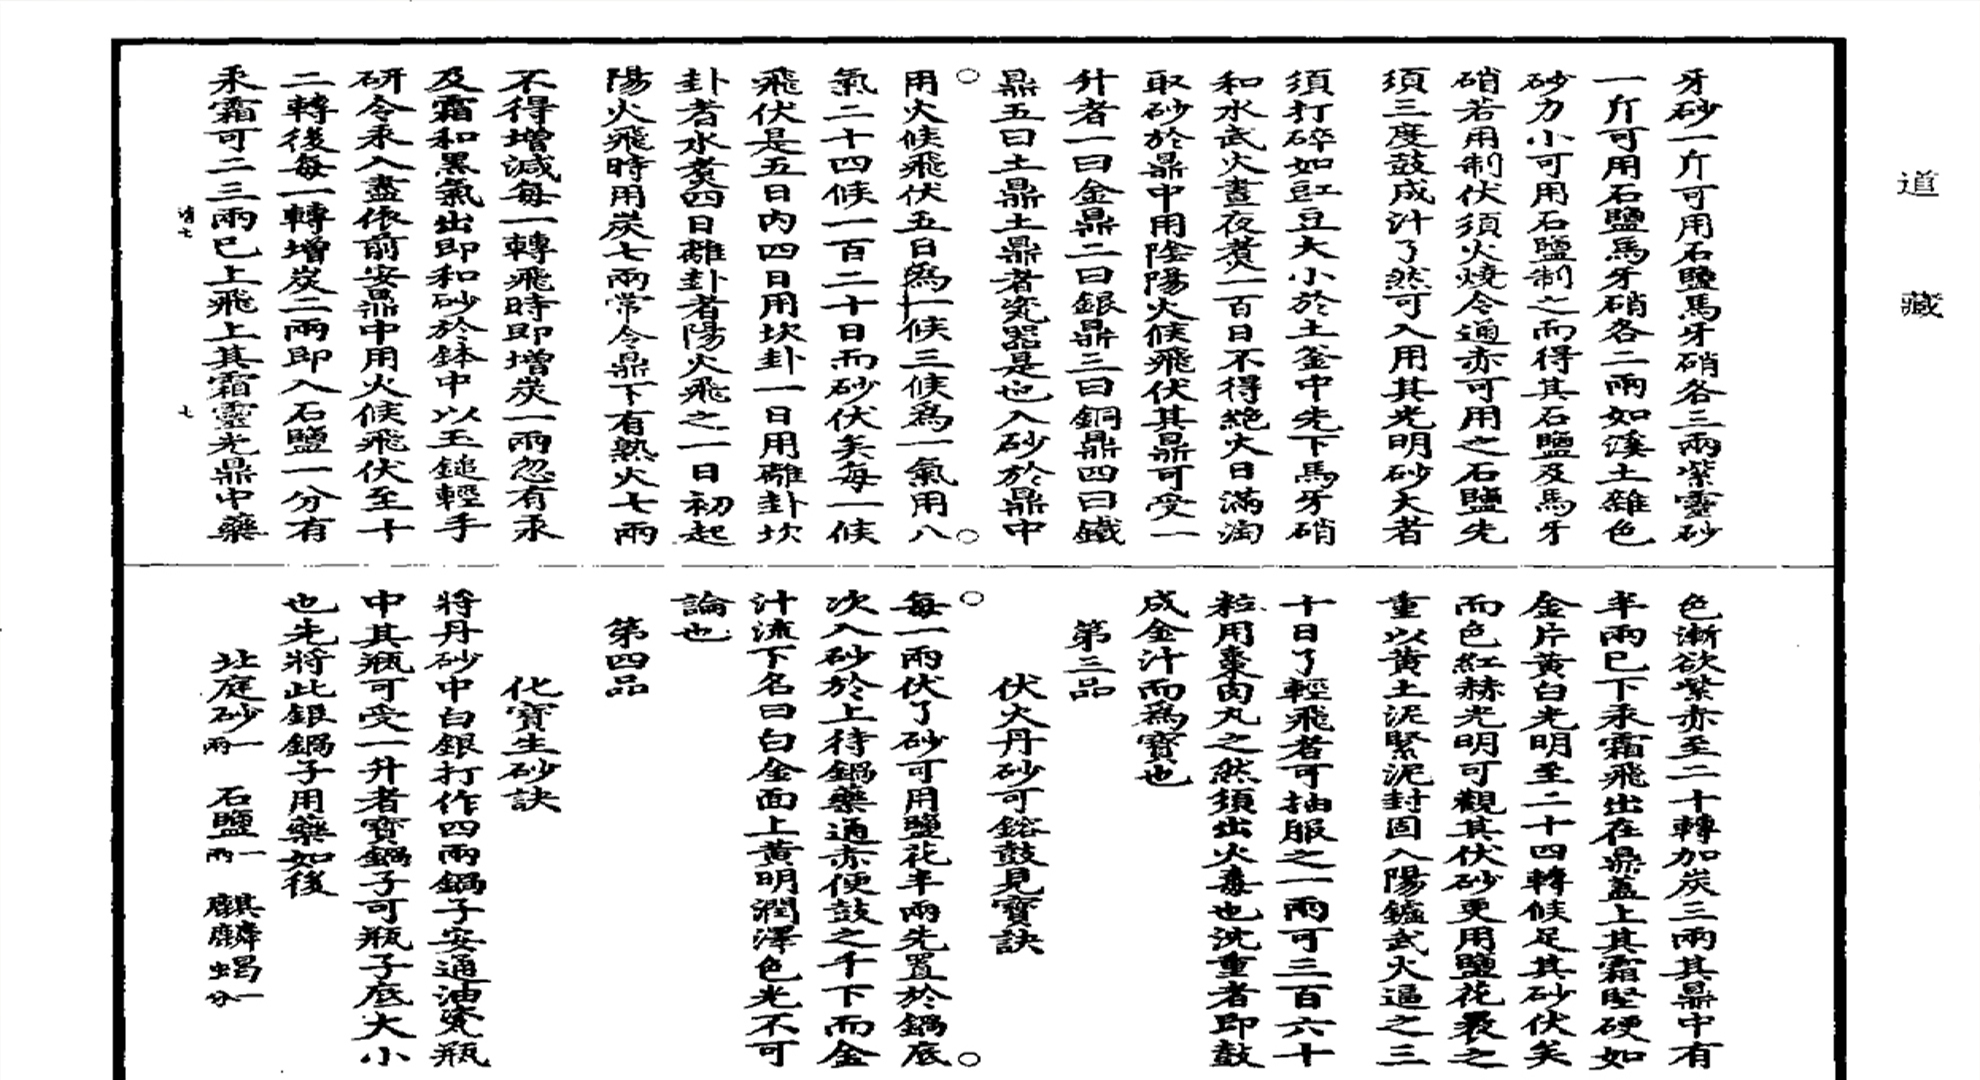 道藏
牙砂一斤可用石鹽馬牙硝各三兩紫靈砂
一斤可用石鹽馬牙硝各二兩如溪土雜色
砂力小可用石鹽制之而得其石鹽及馬牙
硝若用制伏須火燒令通赤可用之石鹽先
須三度鼓成汁了然可入用其光明砂大者
須打碎如豇豆大小於土釜中先下馬牙硝
和水武火晝夜煑一百日不得絶火日滿淘
取砂於鼎中用陰陽火候飛伏其鼎可受一
升者一曰金鼎二曰銀鼎三曰銅鼎四曰鐵
鼎五曰土鼎土鼎者瓷器是也入砂於鼎中
用火候飛伏五日爲一候三候爲一氣用八
氣二十四候一百二十日而砂伏矣每一候
飛伏是五日内四日用坎卦一日用離卦坎
卦者水煑四日離卦者陽火飛之一日初起
陽火飛時用炭七兩常令鼎下有熟火七兩
不得增減每一轉飛時即增炭一兩忽有汞
及霜和黑氣出即和砂於鉢中以玉鎚輕手
研令汞入盡依前安鼎中用火候飛伏至十
二轉後每一轉增炭二兩即入石鹽一分有
汞霜可二三兩已上飛上其霜靈光鼎中藥
七
色漸欲紫赤至二十轉加炭三兩其鼎中有
半兩已下汞霜飛出在鼎蓋上其霜堅硬如
金片黃白光明至二十四轉候足其砂伏矣
而色紅赫光明可觀其伏砂更用鹽花裹之
重以黃土泥緊泥封固入陽鑪武火逼之三
十日了輕飛者可抽服之一兩可三百六十
粒用棗肉丸之然須出火毒也沈重者即鼓
成金汁而爲寶也
第三品
伏火丹砂可鎔鼓見寶訣
每一兩伏了砂可用鹽花半兩先置於鍋底
次入砂於上待鍋藥通赤便鼓之千下而金
汁流下名曰白金面上黃明潤澤色光不可
論也
第四品
化寶生砂訣
將丹砂中白銀打作四兩鍋子安通油瓷瓶
中其瓶可受一升者寶鍋子可瓶子底大小
也先將此銀鍋子用藥如後
北庭砂一兩　石鹽一兩　麒麟蝎一分